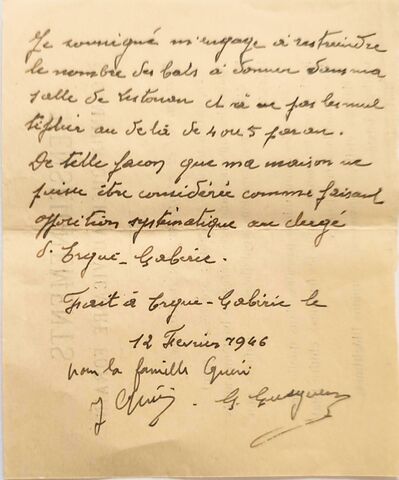 Je soussigné m'engage à restreindre
le nombre des bals à donner dans ma
salle de Lestonan et à ne pas les mul
tiplier au delà de 4 ou 5 par an.
De telle façon que ma maison ne
puisse être considérée comme faisant
opposition systématique au clergé
d'Ergué-Gabéric.
Fait à Ergué-Gabéric le
12 Fevrier 1946
pour la famille Quéré
J Quéré